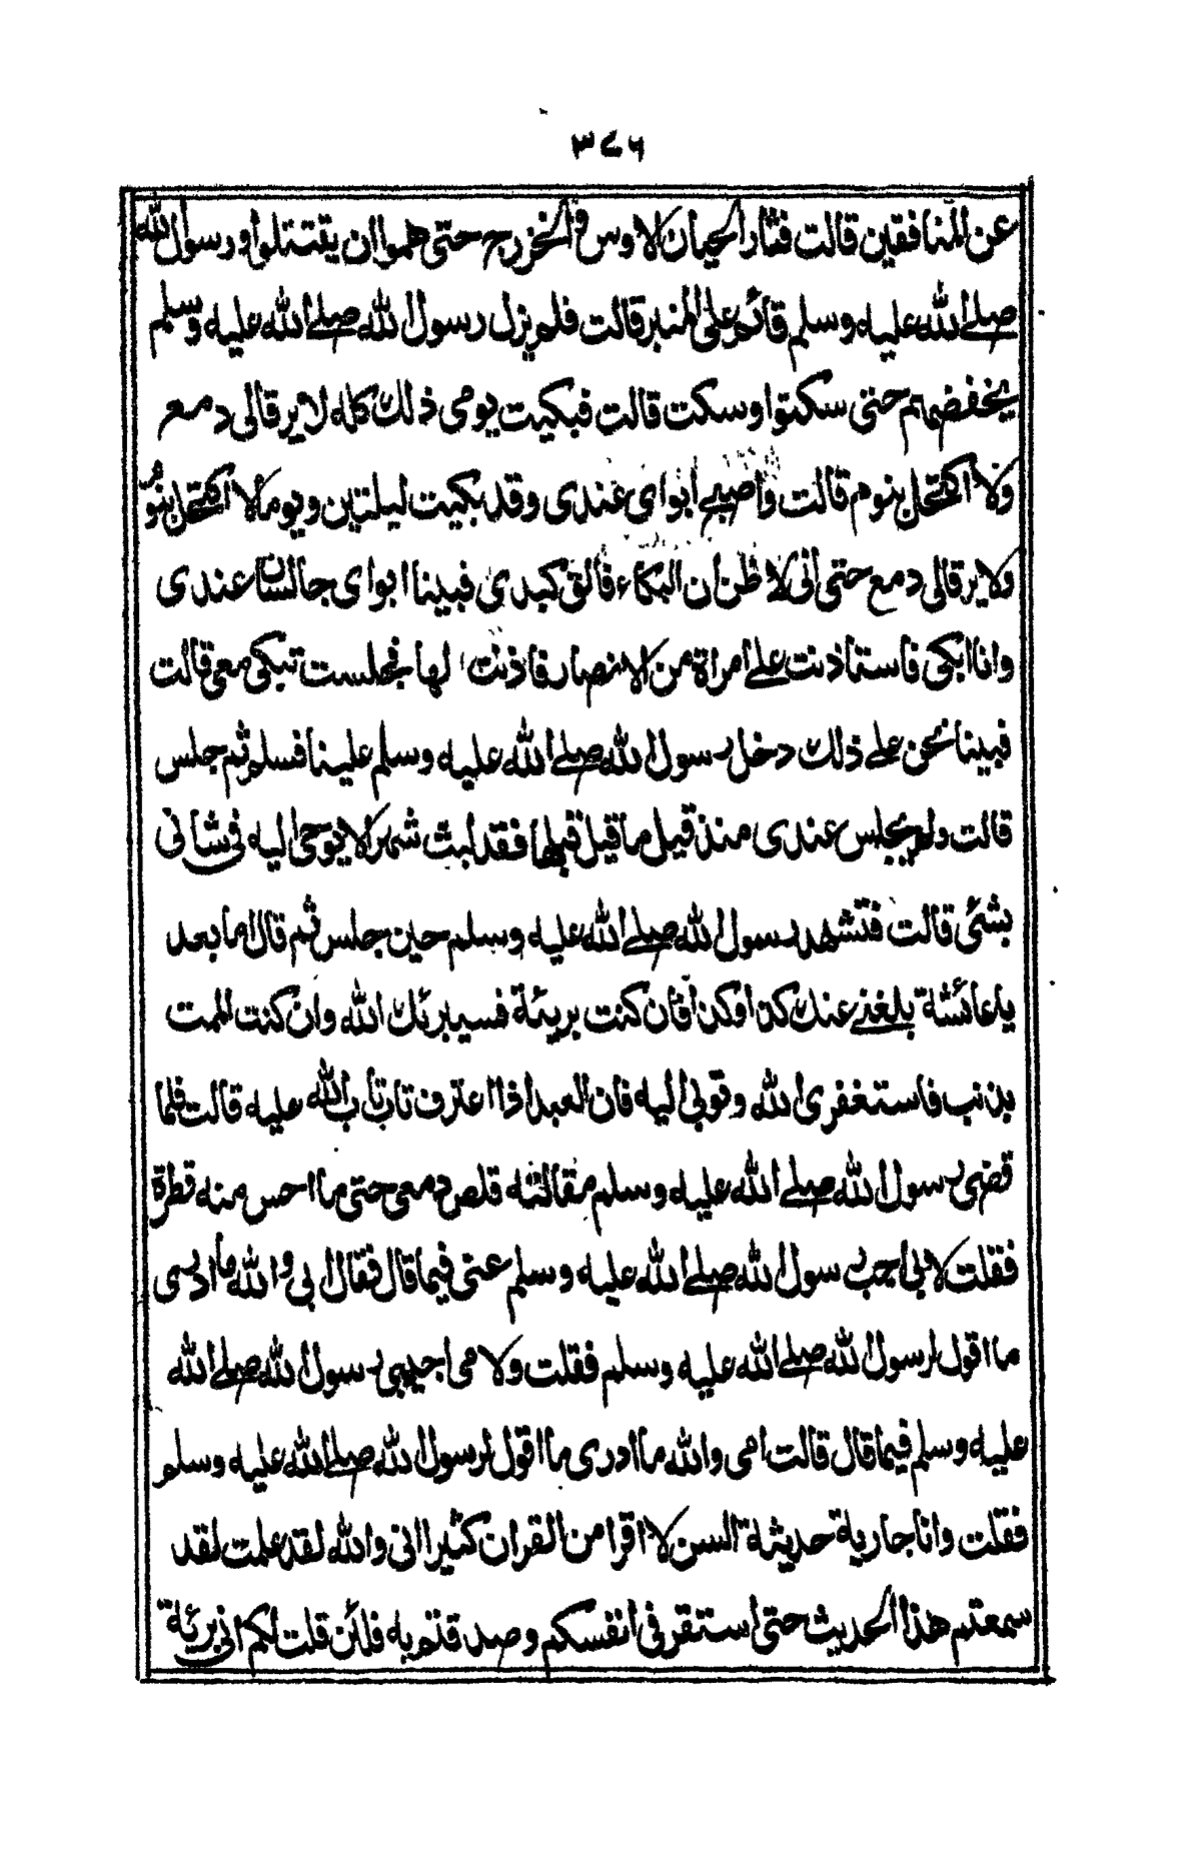 ٣٧٦
عن المنافقين قالت فثار الحيان الاوس و الخزرج حتى هموا ان يقتتلوا ورسول الله
صلى الله عليه وسلم قائم على المنبر قالت فلم يزل رسول الله صلى الله عليه وسلم
يخفضهم حتى سكتوا وسكت قالت فبكيت يومى ذلك كله لا يرقالى دمع
ولا اكتحل بنوم قالت واصبح ابواى عندى وقد بكيت ليلتين ويوما لا اكتحل بنوم
ولا يرقالى دمع حتى انى لاظن ان البكاء فالق كبدى فبينا ابواى جالسان عندى
وانا ابكى فاستاذنت على امراة من الانصار فاذنت لها فجلست تبكى معى قالت
فبينا نحن على ذلك دخل رسول الله صلى الله عليه وسلم علينا فسلم ثم جلس
قالت ولم يجلس عندى منذ قيل ما قيل قبلها فقد لبث شهرا لا يوحى اليه فى شانى
بشئ قالت فتشهد رسول الله صلى الله عليه وسلم حين جلس ثم قال اما بعد
يا عائشة بلغنى عنك كذا وكذا فان كنت بريئة فسيبرئك الله وان كنت الممت
بذنب فاستغفرى الله وتوبى اليه فان العبد اذا اعترف تاب تاب الله عليه قالت فلما
قضى رسول الله صلى الله عليه وسلم مقالته قلص دمعى حتى ما احس منه قطرة
فقلت لابى اجب رسول الله صلى الله عليه وسلم عنى فيما قال فقال ابى والله ما ادرى
ما اقول لرسول الله صلى الله عليه وسلم فقلت ولامى اجيبى رسول الله صلى الله
عليه وسلم فيما قال قالت امى والله ما ادرى ما اقول لرسول الله صلى الله عليه وسلم
فقلت وانا جارية حديثة السن لا اقرا من القران كثيرا انى والله لقد علمت لقد
سمعتم هذا الحديث حتى استقر فى انفسكم وصدقتم به فلئن قلت لكم انى بريئة